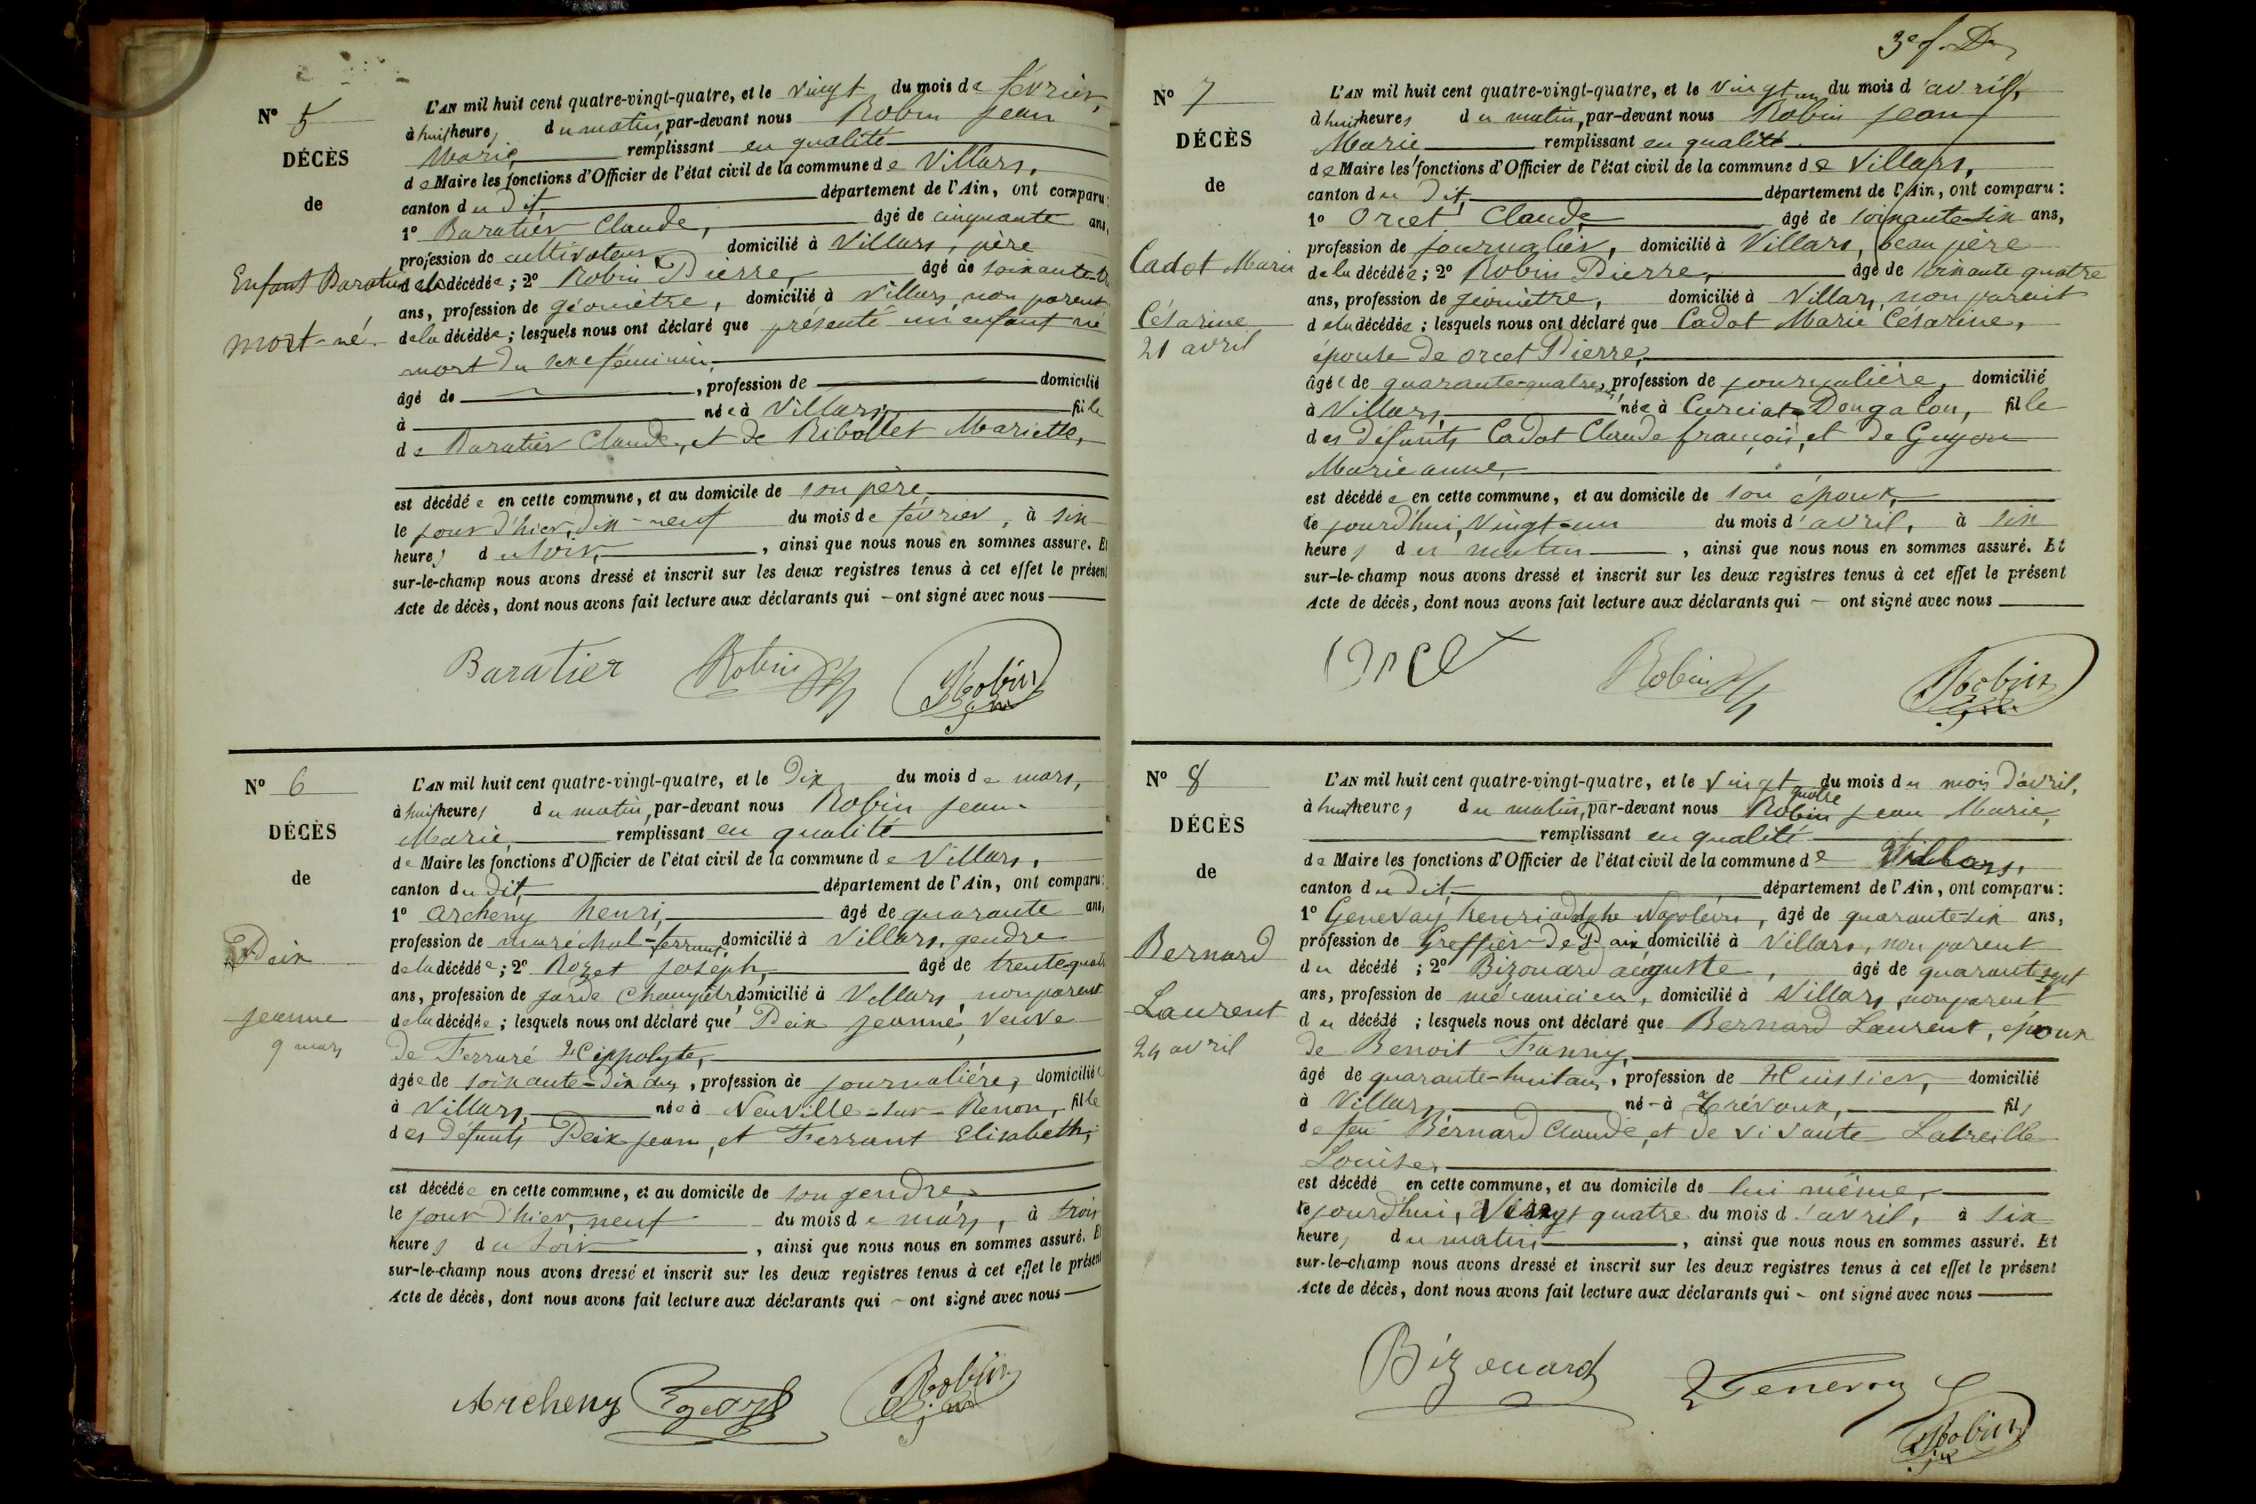 N° 5
DÉCÈS
de
Enfant Baratier
mort-né.
L'AN mil huit cent quatre-vingt-quatre, et le vingt du mois de février,
à huit heures du matin, par-devant nous Robin Jean
Marie, remplissant en qualité
de Maire les fonctions d'Officier de l'état civil de la commune de Villars,
canton du dit, département de l'Ain, ont comparu:
1° Baratier Claude, âgé de cinquante ans,
profession de cultivateur, domicilié à Villars, père
de la décédée; 2° Robin Pierre, âgé de soixante
ans, profession de géomètre, domicilié à Villars, non parent
de la décédée; lesquels nous ont déclaré que présenté un enfant né
mort du sexe féminin,
âgé de , profession de domicilié
à née à Villars, fille
de Baratier Claude, et de Ribollet Mariette,
est décédée en cette commune, et au domicile de son père,
le jour d'hier, dix-neuf du mois de février, à six
heures du soir, , ainsi que nous nous en sommes assuré. Et
sur-le-champ nous avons dressé et inscrit sur les deux registres tenus à cet effet le présent
Acte de décès, dont nous avons fait lecture aux déclarants qui - ont signé avec nous
Baratier Robin Robin
N° 6
DÉCÈS
de
Peix
Jeanne
9 mars
L'AN mil huit cent quatre-vingt-quatre, et le dix du mois de mars,
à huit heures du matin, par-devant nous Robin Jean
Marie, remplissant en qualité
de Maire les fonctions d'Officier de l'état civil de la commune de Villars,
canton du dit, département de l'Ain, ont comparu:
1° Archeny henri, âgé de quarante ans,
profession de maréchal-ferrant, domicilié à Villars, gendre
de la décédée; 2° Rozet Joseph, âgé de trente-quatre
ans, profession de garde champêtre domicilié à Villars, non parent
de la décédée; lesquels nous ont déclaré que Peix Jeanne, Veuve
de Ferraré Hippolyte,
âgée de soixante-dix ans, profession de journalière, domiciliée
à Villars, née à Neuville-sur-Renon, fille
des défunts Peix Jean, et Ferrant Elisabeth,
est décédée en cette commune, et au domicile de son gendre,
le jour d'hier, neuf du mois de mars, à trois
heures du soir , ainsi que nous nous en sommes assuré. Et
sur-le-champ nous avons dressé et inscrit sur les deux registres tenus à cet effet le présent
Acte de décès, dont nous avons fait lecture aux déclarants qui - ont signé avec nous
Archeny Robin
3e f.
N° 7
DÉCÈS
de
Cadot Marie
Césarine
21 avril
L'AN mil huit cent quatre-vingt-quatre, et le vingt un du mois d'avril,
à huit heures du matin, par-devant nous Robin Jean
Marie, remplissant en qualité
de Maire les fonctions d'Officier de l'état civil de la commune de Villars,
canton du dit, département de l'Ain, ont comparu:
1° Orcet Claude, âgé de soixante-six ans,
profession de journalier, domicilié à Villars, beau père
de la décédée; 2° Robin Pierre, âgé de soixante quatre
ans, profession de géomètre, domicilié à Villars, non parent
de la décédée; lesquels nous ont déclaré que Cadot Marie Césarine,
épouse de Orcet Pierre,
âgée de quarante-quatre ans, profession de journalière, domicilié
à Villars, née à Curciat-Dongalon, fille
des défunts Cadot Claude françois, et de Guyon
Marie anne,
est décédée en cette commune, et au domicile de son époux,
le jourd'hui, Vingt-un du mois d'avril, à six
heures du matin , ainsi que nous nous en sommes assuré. Et
sur-le-champ nous avons dressé et inscrit sur les deux registres tenus à cet effet le présent
Acte de décès, dont nous avons fait lecture aux déclarants qui - ont signé avec nous
Orcet Robin Robin
N° 8
DÉCÈS
de
Bernard
Laurent
24 avril
L'AN mil huit cent quatre-vingt-quatre, et le vingt quatre du mois du mois d'avril,
à huit heures du matin, par-devant nous Robin Jean Marie,
remplissant en qualité
de Maire les fonctions d'Officier de l'état civil de la commune de Villars,
canton du dit, département de l'Ain, ont comparu:
1° Genevay henri adolphe Napoléon, âgé de quarante-six ans,
profession de Greffier de Paix domicilié à Villars, non parent
du décédé; 2° Bizouard auguste, âgé de quarante sept
ans, profession de mécanicien, domicilié à Villars, non parent
du décédé; lesquels nous ont déclaré que Bernard Laurent, époux
de Benoit Fanny,
âgé de quarante-huit ans, profession de Huissier, domicilié
à Villars, né à Trévoux, fils
de feu Bernard Claude, et de vivante Latreille
Louise,
est décédé en cette commune, et au domicile de lui même,
le jourd'hui, Vingt quatre du mois d'avril, à six
heures du matin , ainsi que nous nous en sommes assuré. Et
sur-le-champ nous avons dressé et inscrit sur les deux registres tenus à cet effet le présent
Acte de décès, dont nous avons fait lecture aux déclarants qui - ont signé avec nous
Bizouard Genevay
Robin